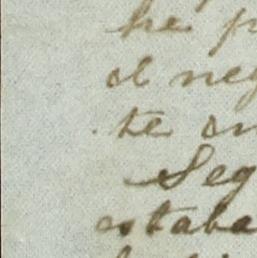 he p
el neg
te en
Seg
estaba